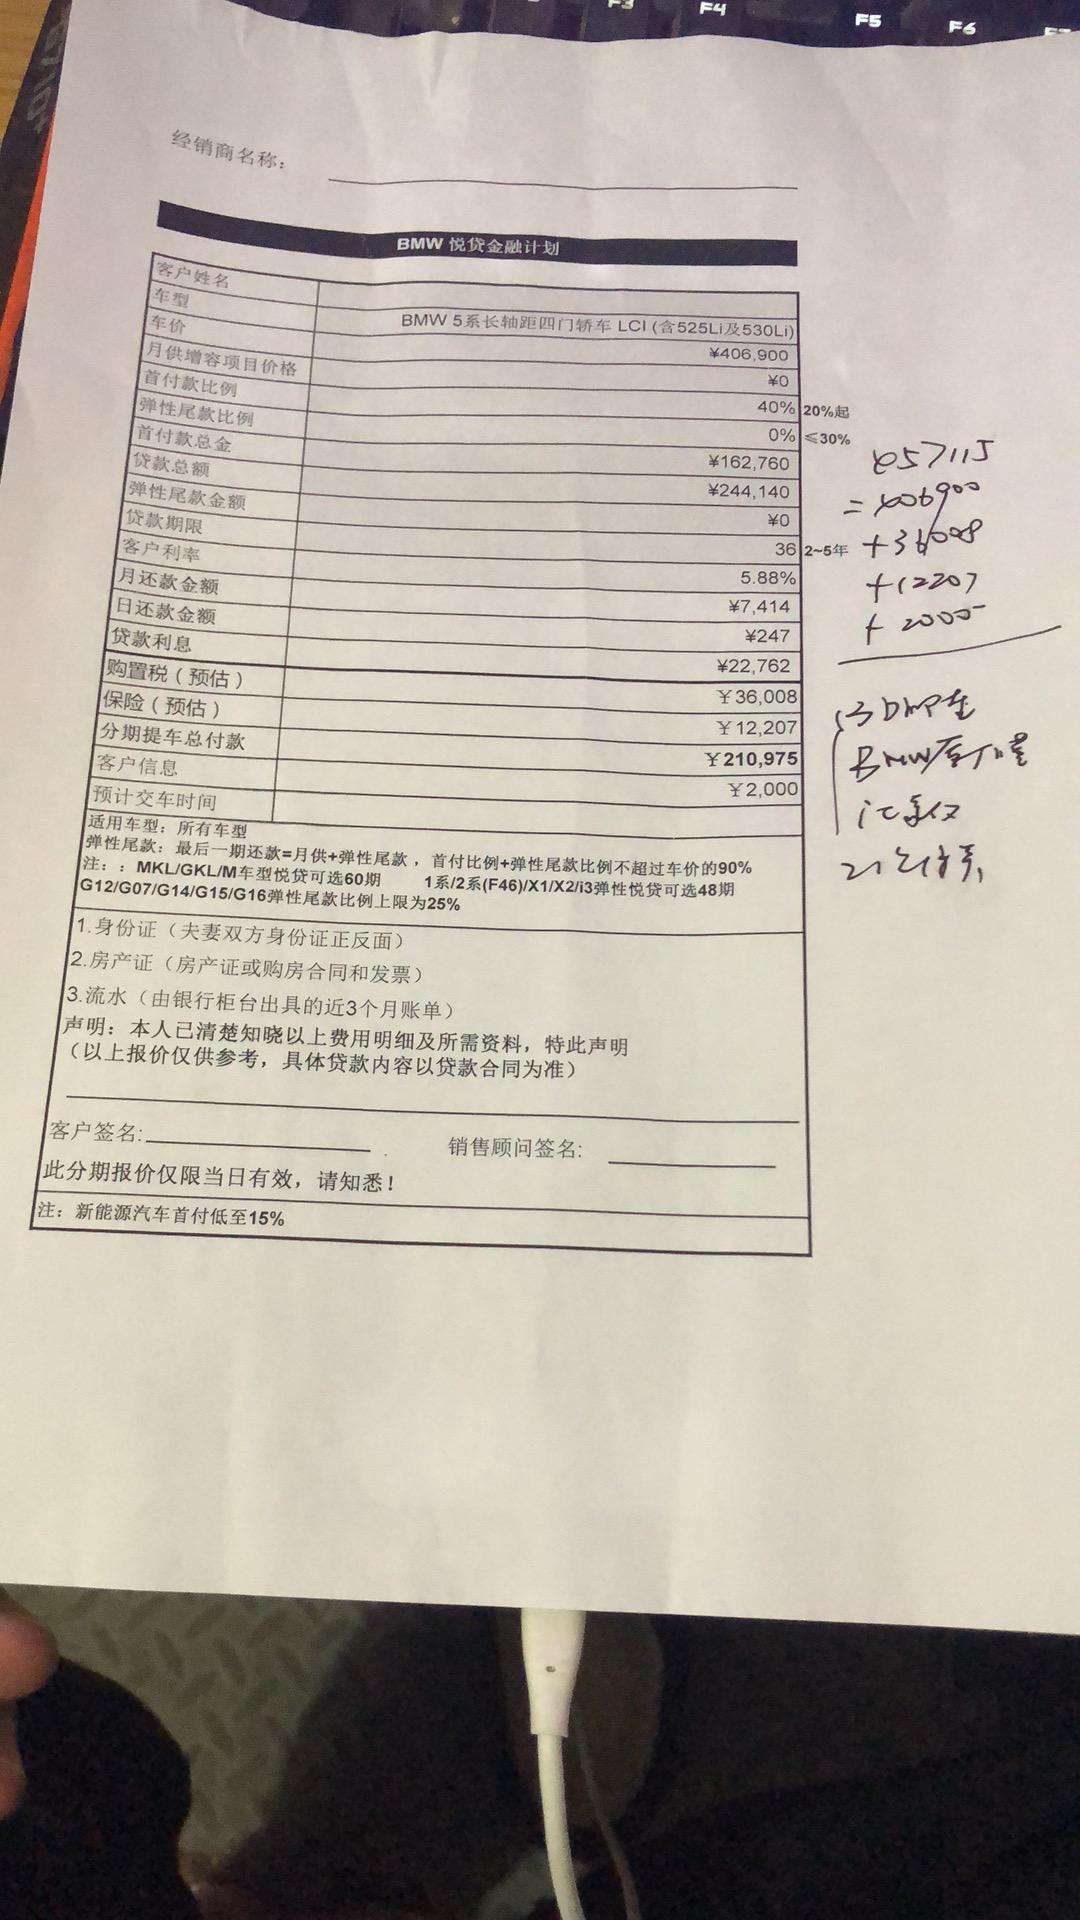 F3
F4
F5
F6
经销商名称：
BMW 悦贷金融计划
客户姓名
车型
BMW 5系长轴距四门轿车 LCI (含525Li及530Li)
车价
¥406,900
月供增容项目价格
¥0
首付款比例
40% 20%起
弹性尾款比例
0% ≤30%
首付款总金
¥162,760
贷款总额
¥244,140
弹性尾款金额
¥0
贷款期限
36 2~5年
客户利率
5.88%
月还款金额
¥7,414
日还款金额
¥247
贷款利息
¥22,762
购置税（预估）
¥36,008
保险（预估）
¥12,207
分期提车总付款
¥210,975
客户信息
¥2,000
预计交车时间
适用车型：所有车型
弹性尾款：最后一期还款=月供+弹性尾款，首付比例+弹性尾款比例不超过车价的90%
注：：MKL/GKL/M车型悦贷可选60期 1系/2系(F46)/X1/X2/i3弹性悦贷可选48期
G12/G07/G14/G15/G16弹性尾款比例上限为25%
1.身份证（夫妻双方身份证正反面）
2.房产证（房产证或购房合同和发票）
3.流水（由银行柜台出具的近3个月账单）
声明：本人已清楚知晓以上费用明细及所需资料，特此声明
（以上报价仅供参考，具体贷款内容以贷款合同为准）
客户签名:
销售顾问签名:
此分期报价仅限当日有效，请知悉！
注：新能源汽车首付低至15%
457115
=406900
+36008
+12207
+2000
BMW